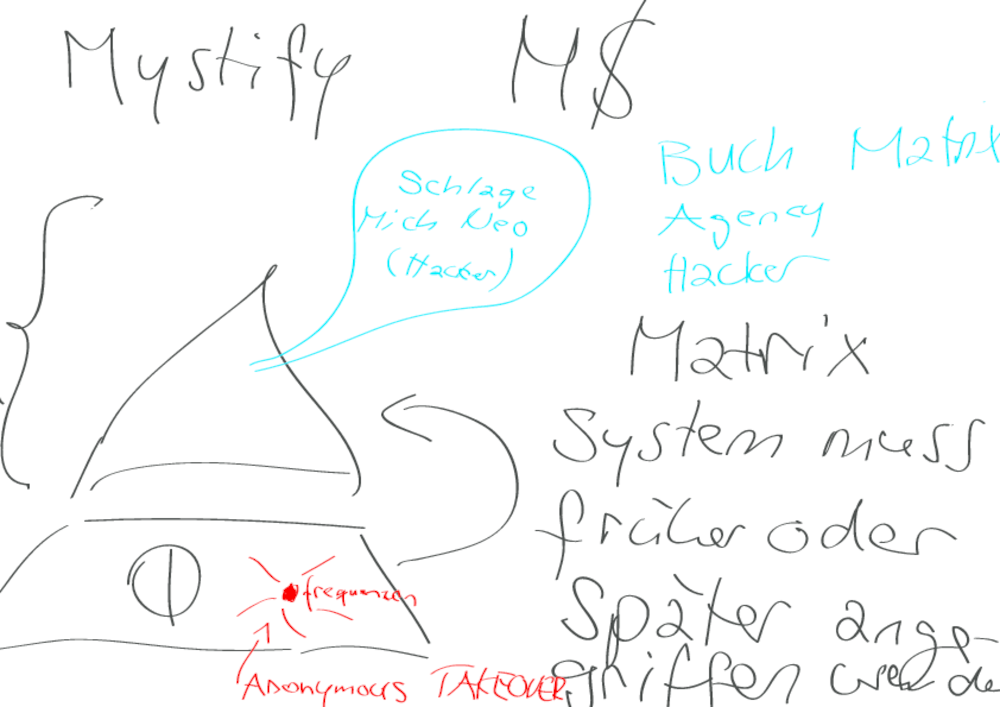 Mystify M$
Buch Matrix
Schlage
Mich Neo
(Hacker)
Agency
Hacker
Matrix
System muss
früher oder
Später ange-
griffen werde
frequenzen
Anonymous TAKEOVER